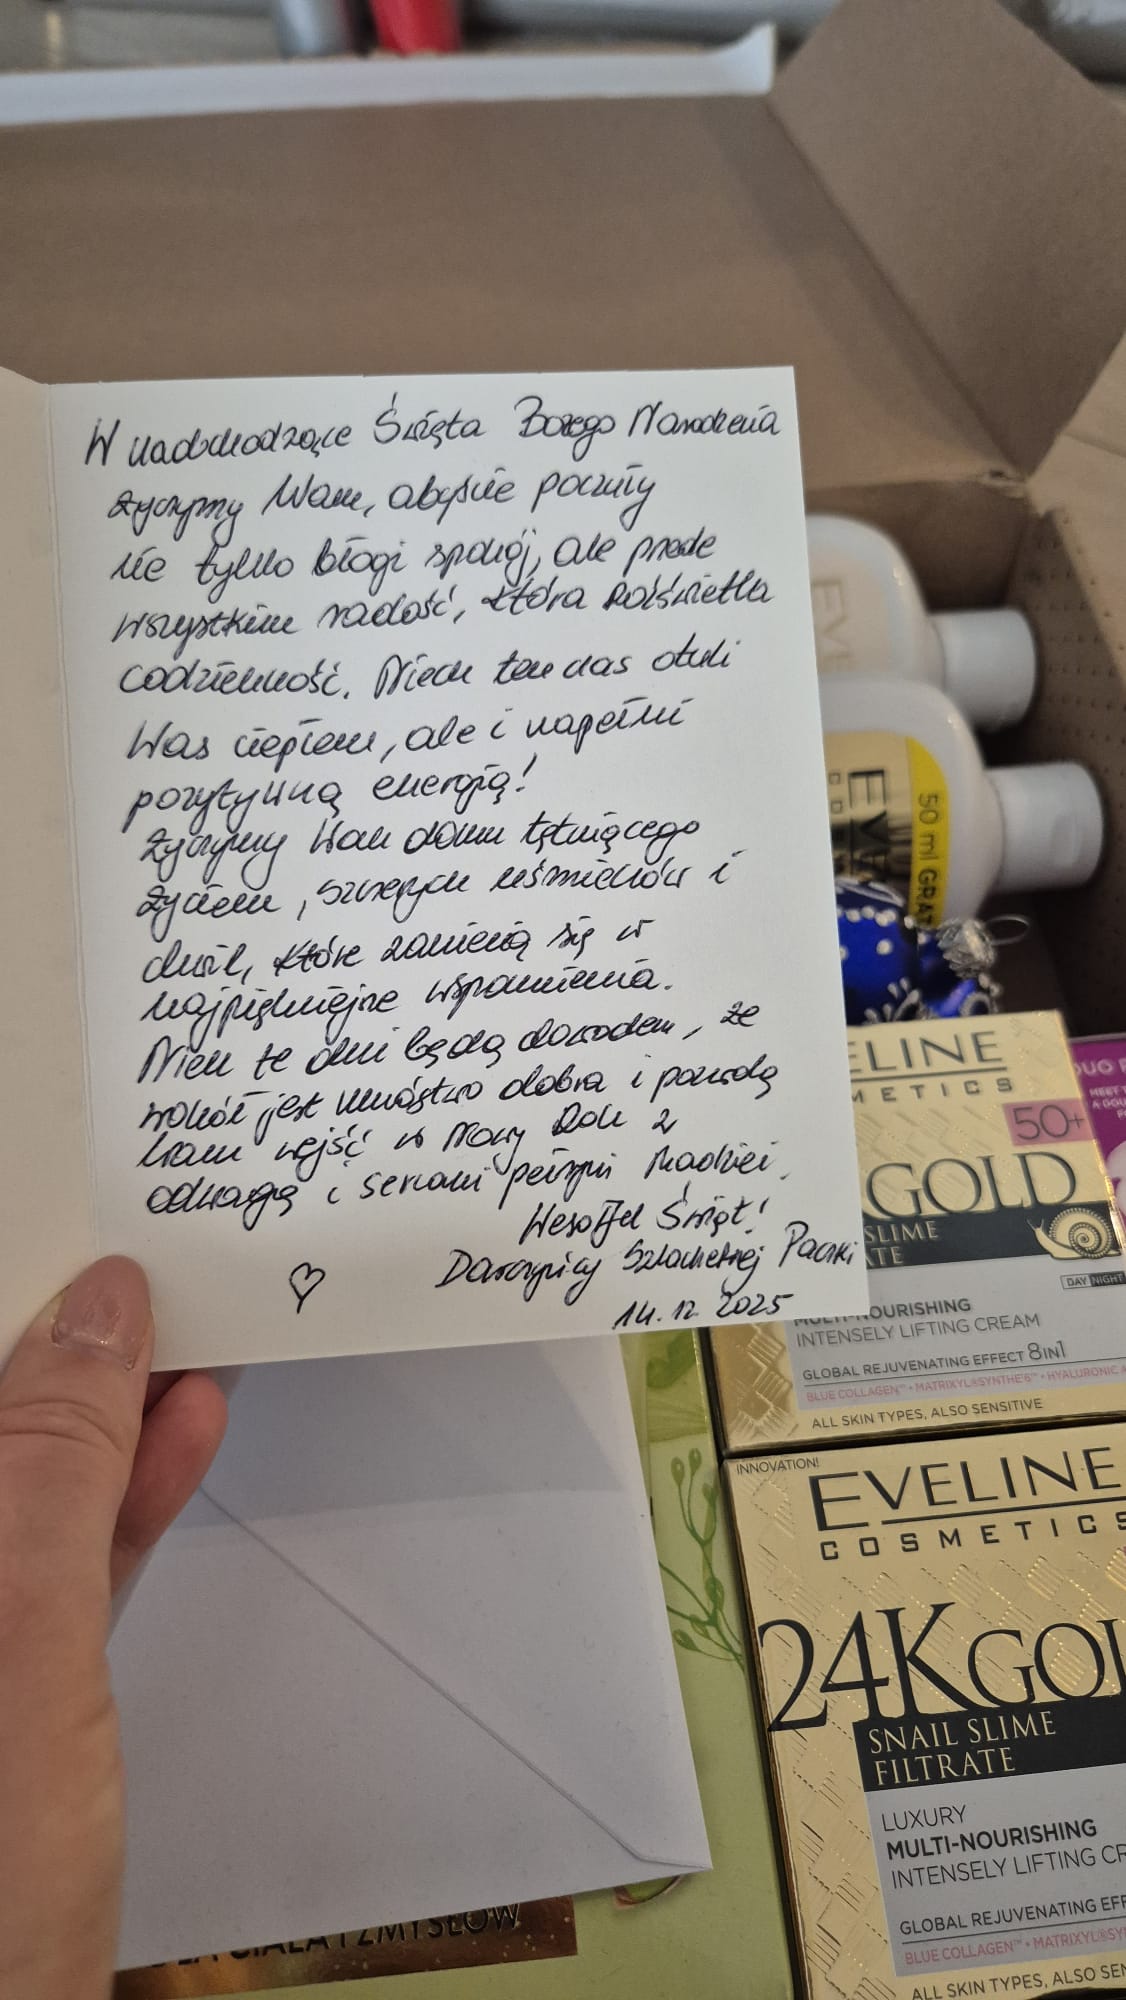 W nadchodzące Święta Bożego Narodzenia
życzymy Wam, abyście poczuły
nie tylko błogi spokój, ale przede
wszystkim radość, która rozświetla
codzienność. Niech ten czas otuli
Was ciepłem, ale i napełni
pozytywną energią!
Życzymy Wam domu tętniącego
życiem, szczerych uśmiechów i
chwil, które zamienią się w
najpiękniejsze wspomnienia.
Niech te dni będą dowodem, że
wokół jest mnóstwo dobra i pozwolą
Wam wejść w Nowy Rok z
odwagą i sercami pełnymi nadziei.
Wesołych Świąt!
Darczyńcy Szlachetnej Paczki
14.12.2025
EVE
50 ml GRAT
ELINE
METICS
50+
GOLD
SLIME
DAY NIGHT
MULTI-NOURISHING
INTENSELY LIFTING CREAM
GLOBAL REJUVENATING EFFECT 8IN1
BLUE COLLAGEN™ • MATRIXYL®SYNTHE'6™ • HYALURONIC A
ALL SKIN TYPES, ALSO SENSITIVE
INNOVATION!
EVELINE
COSMETICS
24K GOL
SNAIL SLIME
FILTRATE
LUXURY
MULTI-NOURISHING
INTENSELY LIFTING CR
GLOBAL REJUVENATING EFF
BLUE COLLAGEN™ • MATRIXYL®SY
ALL SKIN TYPES, ALSO SEN
CIAŁA I ZMYSŁÓW